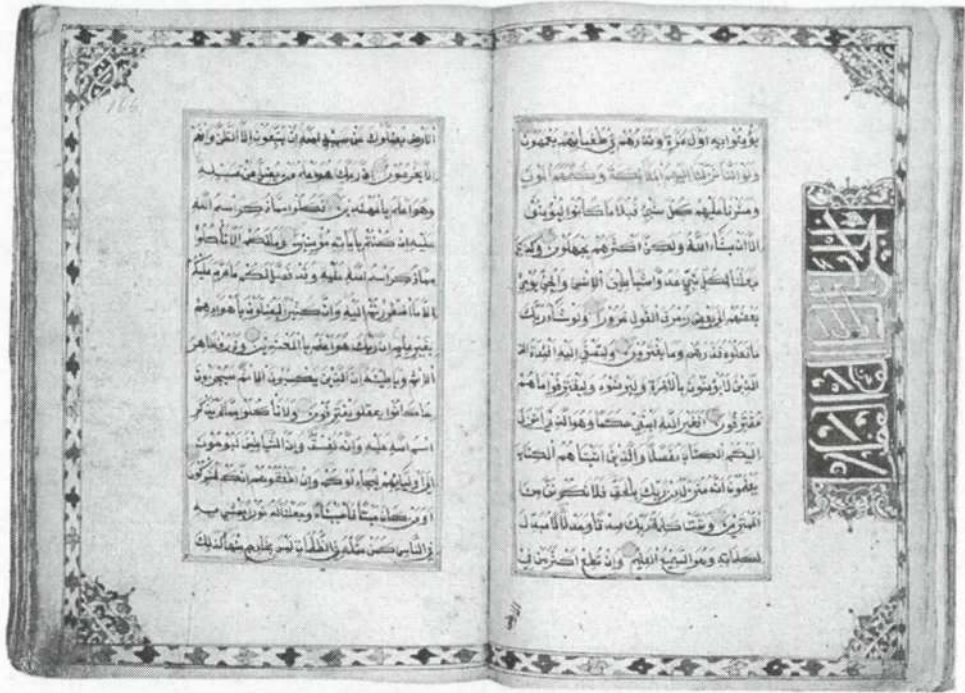 يؤمنوا به اول مرة ونذرهم في طغيانهم يعمهون
ولو اننا نزلنا اليهم الملائكة وكلمهم الموتى
وحشرنا عليهم كل شيء قبلا ما كانوا ليؤمنوا
الا ان يشاء الله ولكن اكثرهم يجهلون وكذلك
جعلنا لكل نبي عدوا شياطين الانس والجن يوحي
بعضهم الى بعض زخرف القول غرورا ولو شاء ربك
ما فعلوه فذرهم وما يفترون ولتصغى اليه افئدة
الذين لا يؤمنون بالاخرة وليرضوه وليقترفوا ما هم
مقترفون افغير الله ابتغي حكما وهو الذي انزل
اليكم الكتاب مفصلا والذين اتيناهم الكتاب
يعلمون انه منزل من ربك بالحق فلا تكونن من
الممترين وتمت كلمة ربك صدقا وعدلا لا مبدل
لكلماته وهو السميع العليم وان تطع اكثر من في
الارض
166
الارض يضلوك عن سبيل الله ان يتبعون الا الظن وان هم
الا يخرصون ان ربك هو اعلم من يضل عن سبيله
وهو اعلم بالمهتدين فكلوا مما ذكر اسم الله
عليه ان كنتم باياته مؤمنين وما لكم الا تاكلوا
مما ذكر اسم الله عليه وقد فصل لكم ما حرم عليكم
الا ما اضطررتم اليه وان كثيرا ليضلون باهوائهم
بغير علم ان ربك هو اعلم بالمعتدين وذروا ظاهر
الاثم وباطنه ان الذين يكسبون الاثم سيجزون
بما كانوا يقترفون ولا تاكلوا مما لم يذكر
اسم الله عليه وانه لفسق وان الشياطين ليوحون
الى اوليائهم ليجادلوكم وان اطعتموهم انكم لمشركون
اومن كان ميتا فاحييناه وجعلنا له نورا يمشي به
في الناس كمن مثله في الظلمات ليس بخارج منها كذلك